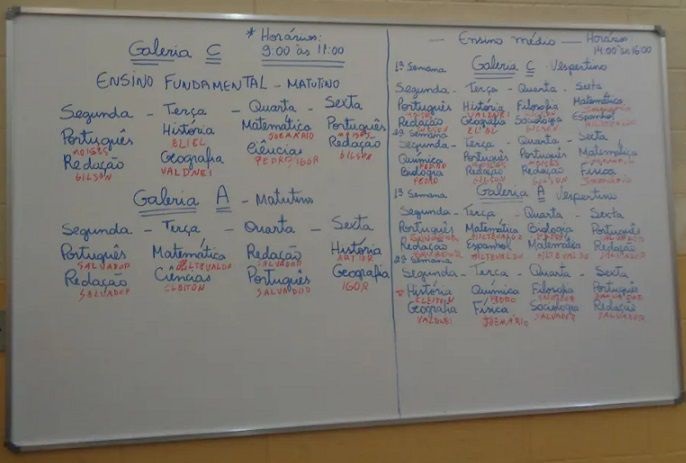 Galeria C
* Horários:
9:00 às 11:00
ENSINO FUNDAMENTAL - MATUTINO
Segunda - Terça - Quarta - Sexta
Português História Matemática Português
MOISES ELIEL JOEMARIO MOISES
Redação Geografia Ciências Redação
GILSON VALDNEI PEDRO IGOR GILSON
Galeria A - Matutino
Segunda - Terça - Quarta - Sexta
Português Matemática Redação História
SALVADOR SALVADOR
Redação Ciências Português Geografia
SALVADOR CLEITON SALVADOR IGOR
Ensino médio
Horários:
14:00 às 16:00
1ª Semana Galeria C Vespertino
Segunda - Terça - Quarta - Sexta
Português História Filosofia Matemática
VALDNEI GILSON
Redação Geografia Sociologia Espanhol
ELIEL GILSON
2ª Semana
Segunda - Terça - Quarta - Sexta
Química Português Português Matemática
PEDRO MOISES MOISES
Biologia Redação Redação Física
PEDRO GILSON GILSON
1ª Semana Galeria A Vespertino
Segunda - Terça - Quarta - Sexta
Português Matemática Biologia Português
SALVADOR
Redação Espanhol Matemática Redação
SALVADOR SALVADOR
2ª Semana
Segunda - Terça - Quarta - Sexta
História Química Filosofia Português
CLEITON PEDRO SALVADOR SALVADOR
Geografia Física Sociologia Redação
VALDNEI JOEMARIO SALVADOR SALVADOR